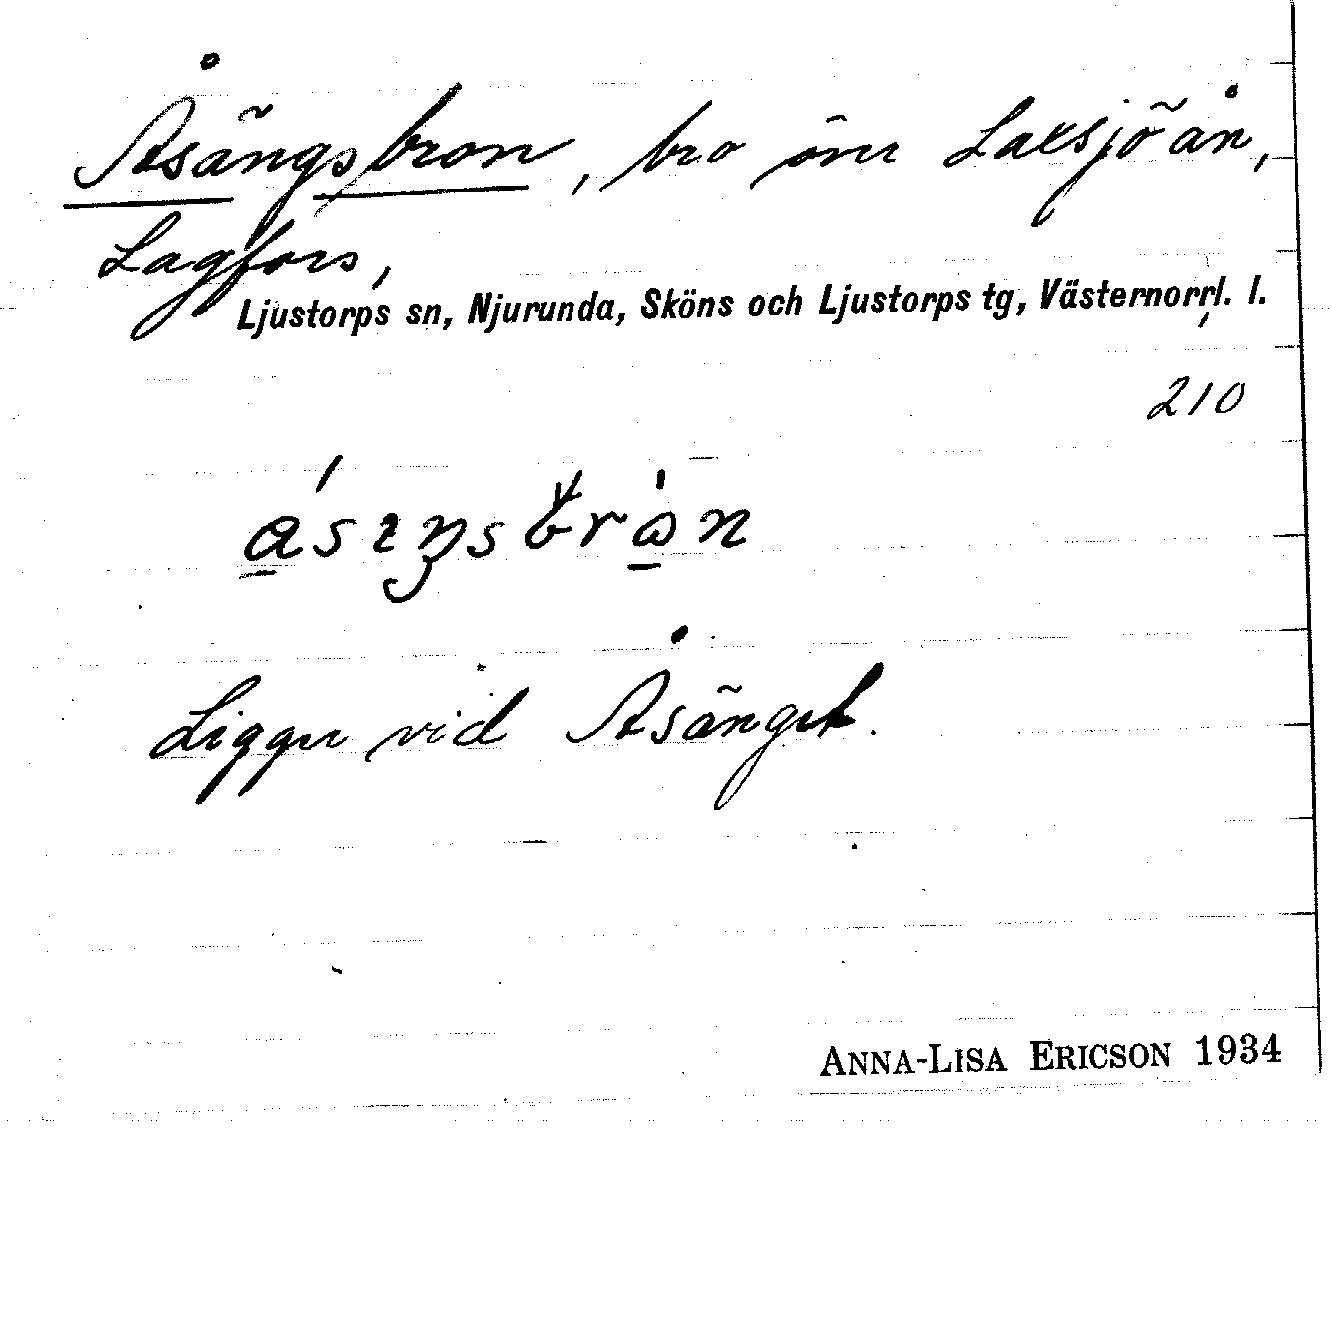 Åsängsbron, bro över Laxsjöån,
Lagfors,
Ljustorps sn, Njurunda, Sköns och Ljustorps tg, Västernorrl. l.
210
Ligger vid Åsänget.
ANNA-LISA ERICSON 1934